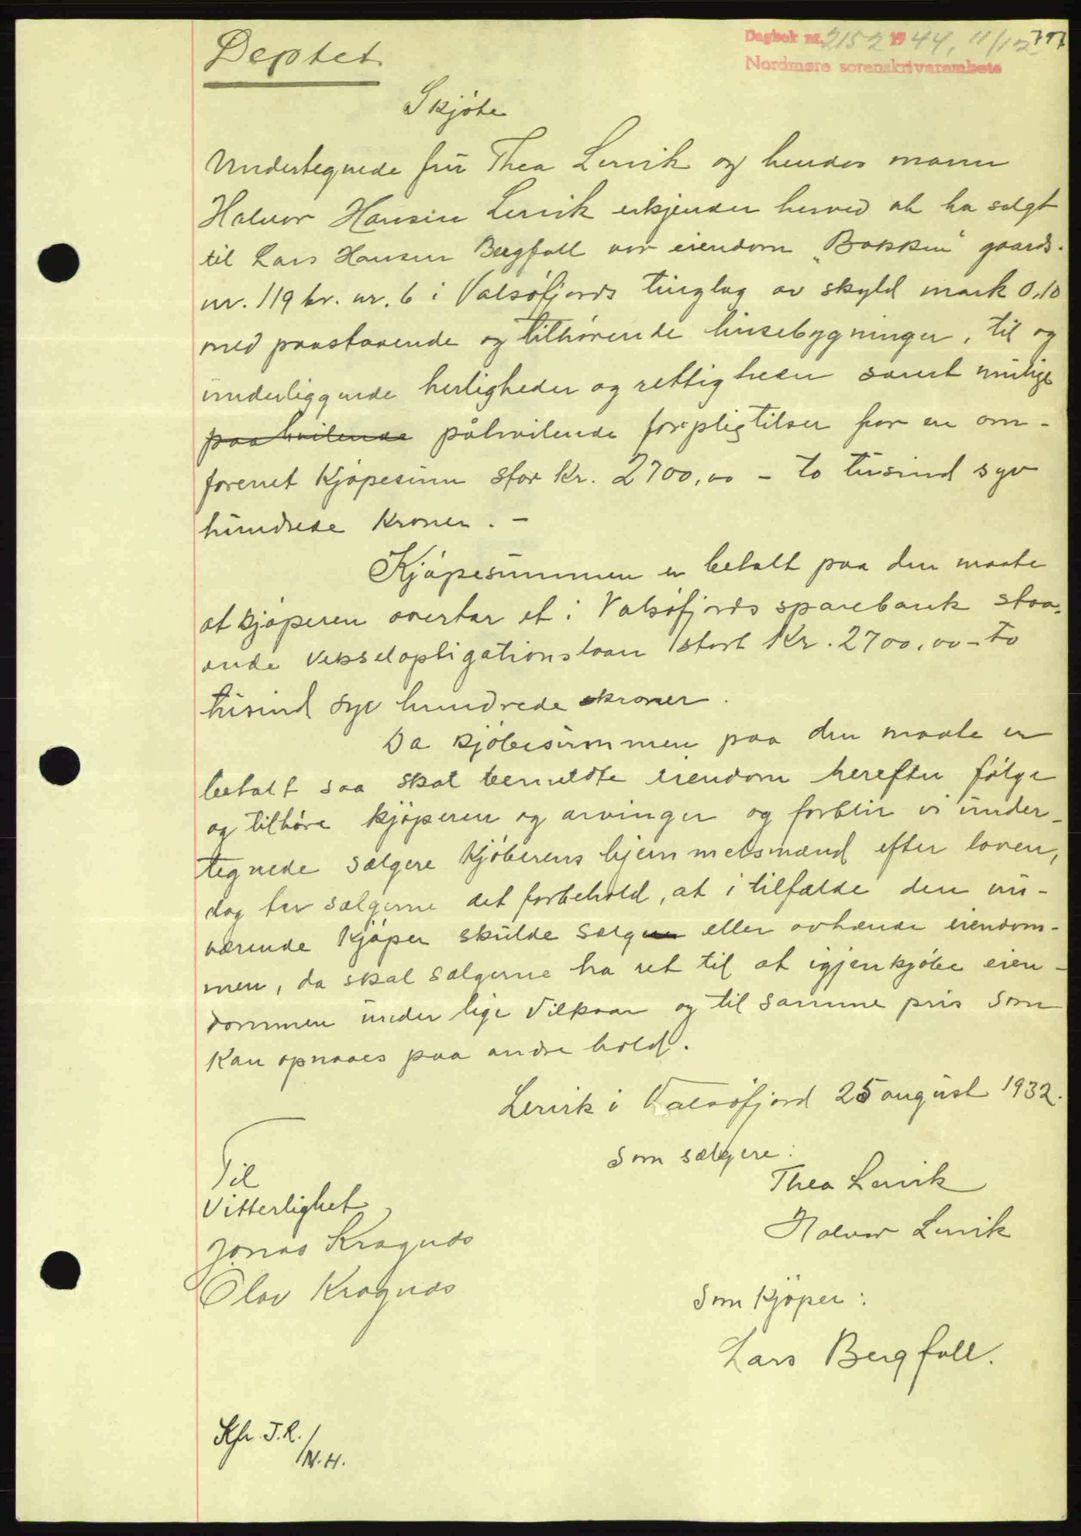 Deptet.
Dagbok nr. 2152 1944, 11/12
797
Nordmøre sorenskriverembete
Skjøte
Undertegnede fru Thea Lervik og hendes mann
Halvor Hansen Lervik erkjender herved at ha solgt
til Lars Hansen Bergfall vor eiendom "Bakken" gaards-
nr. 119 br. nr. 6 i Valsøfjords tinglag av skyld mark 0,10
med paastaaende og tilhørende husebygninger, til og
underliggende herligheder og rettigheder samt mulige
paahvilende påhvilende forpligtilser for en om-
forenet kjøpesum stor kr. 2700,00 - to tusind syv
hundrede kroner. -
Kjøpesummen er betalt paa den maate
at kjøperen overtar et i Valsøfjords sparebank staa-
ende vekselobligationslaan stort kr. 2700,00 - to
tusind syv hundrede kroner.
Da kjøbesummen paa den maate er
betalt saa skal bemeldte eiendom herefter følge
og tilhøre kjøperen og arvinger og forblir vi under-
tegnede sælgere kjøberens hjemmelsmænd efter loven,
dog tar sælgerne det forbehold, at i tilfælde den nu-
værende kjøper skulde sælge eller avhænde eiendom-
men, da skal sælgerne ha ret til at igjenkjøbe eien-
dommen under lige vilkaar og til samme pris som
kan opnaaes paa andre hold.
Lervik i Valsøfjord 25 august 1932.
Som sælgere:
Thea Lervik
Halvor Lervik
Til
Vitterlighet,
Jonas Kragnæs
Olav Kragnæs
Som kjøper:
Lars Bergfall.
Kfr. T.R./N.H.